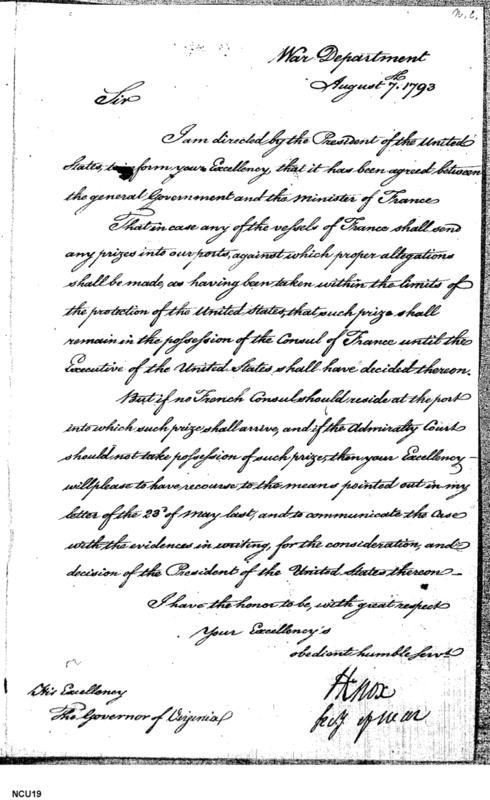 N.C.
War Department
August 7th. 1793
Sir
I am directed by the President of the United
States, to inform your Excellency, that it has been agreed between
the general Government and the Minister of France
That in case any of the vessels of France shall send
any prizes into our ports, against which proper allegations
shall be made, as having ben taken within the limits of
the protection of the United States, that such prize shall
remain in the possession of the Consul of France until the
Executive of the United States shall have decided thereon.
But if no French Consul should reside at the port
into which such prize shall arrive, and if the Admiralty Court
should not take possession of such prize, then your Excellency
will please to have recourse to the means pointed out in my
letter of the 23d of May last, and to communicate the Case
with the evidences in writing, for the consideration, and
decision of the President of the United States thereon
I have the honor to be, with great respect
Your Excellency's
obedient humble Servt
His Excellency
The Governor of Virginia
HKnox
secy of war
NCU19